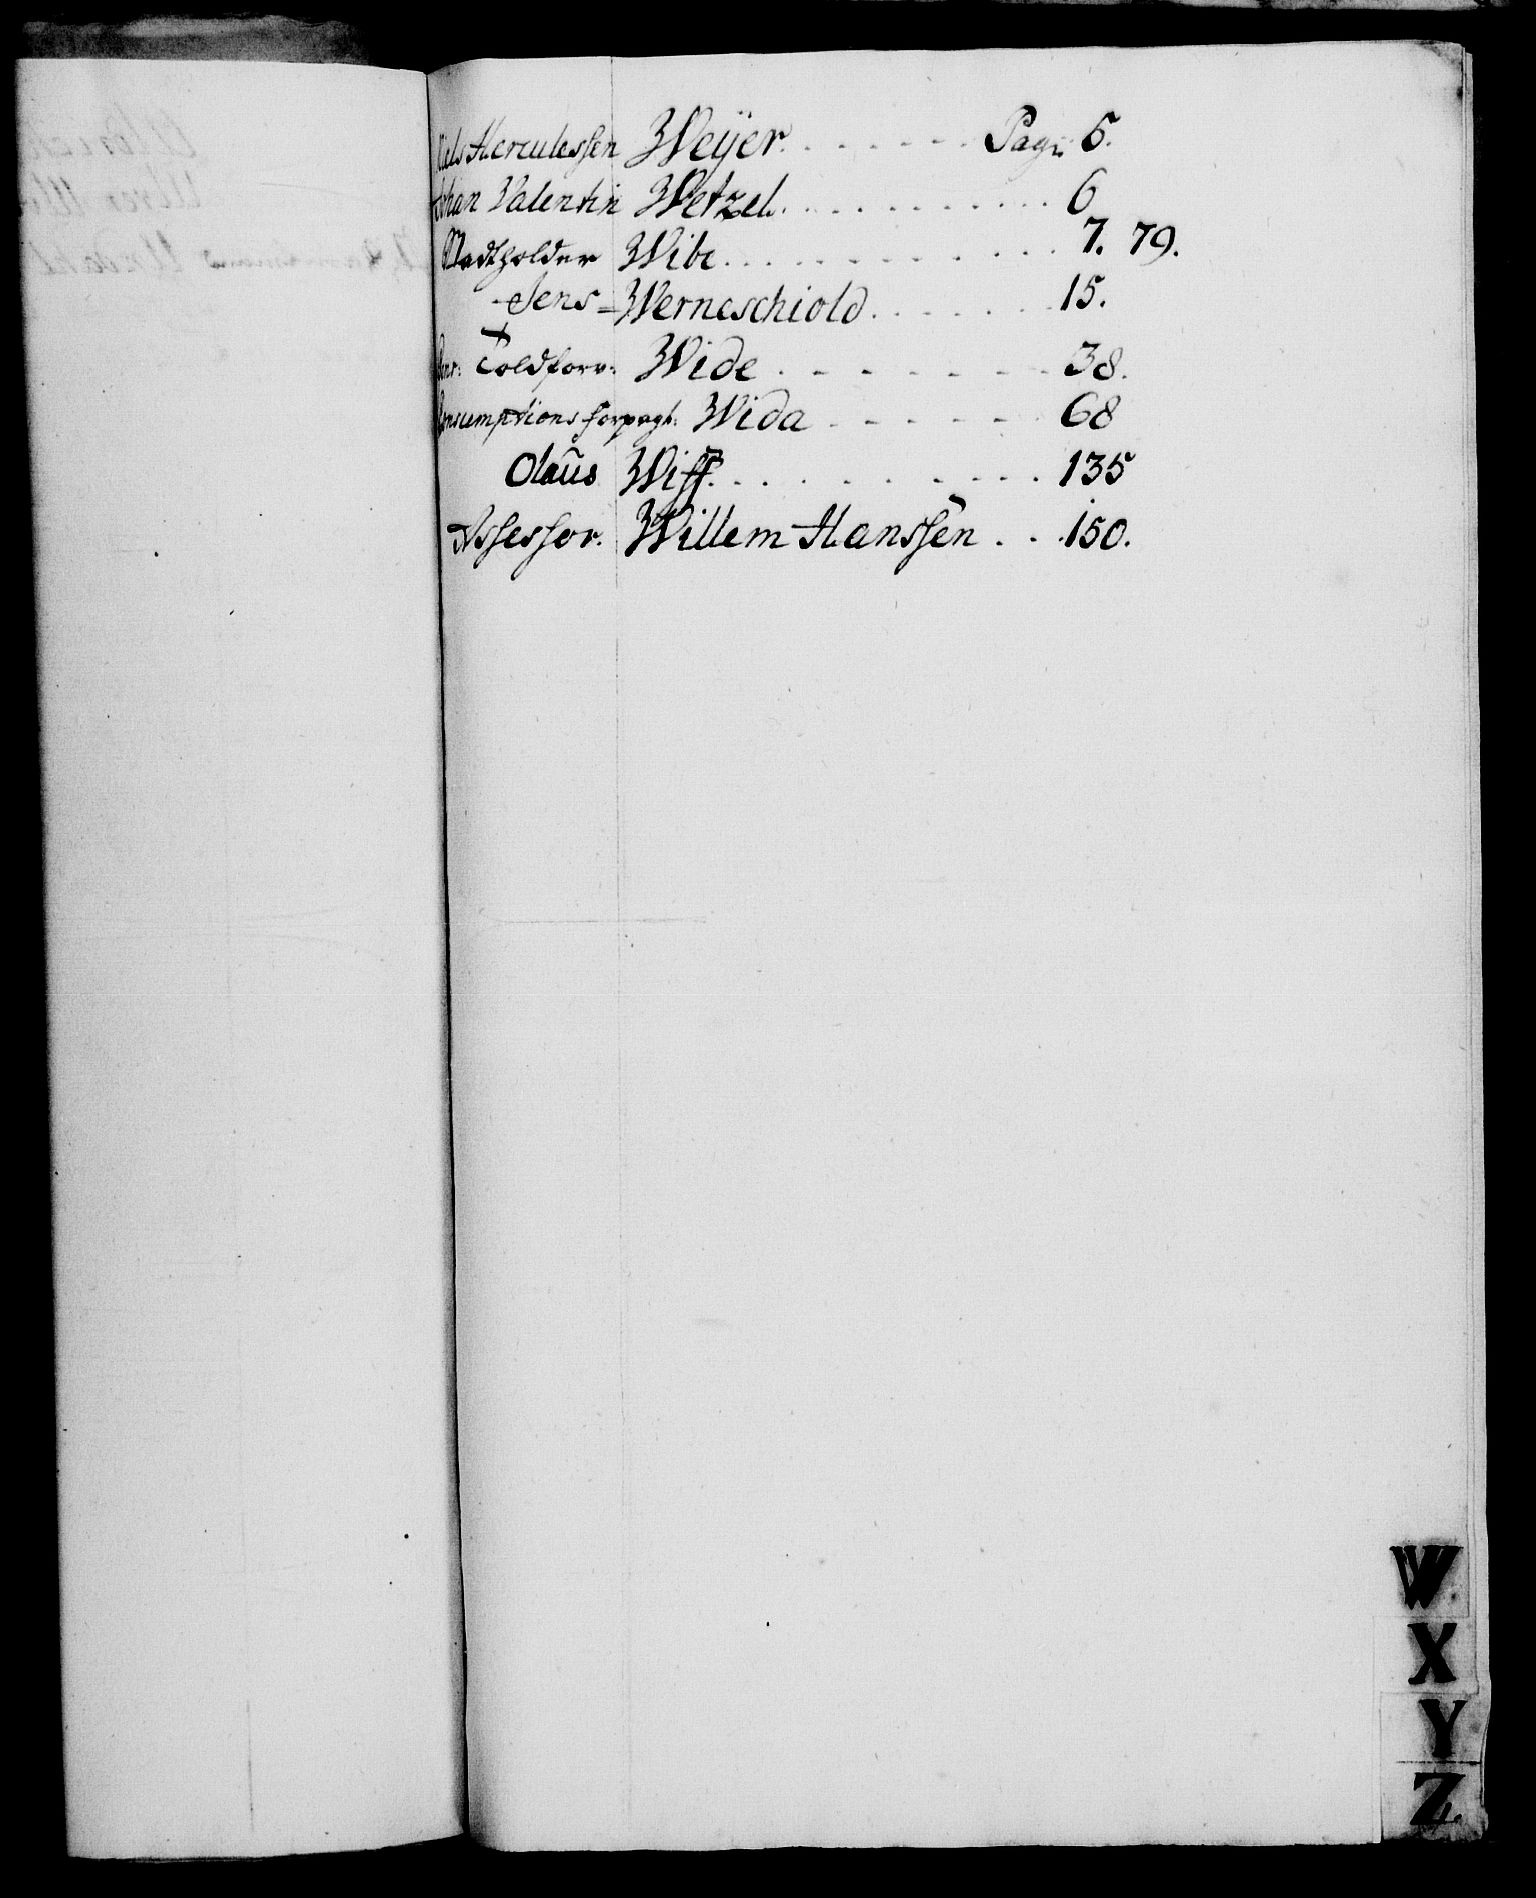 Niels Herculessen Weÿer. . . . . . . Pag: 5.
Johan Valentin Wetzel. . . . . . . . . . . 6
Stadtholder Wibe. . . . . . . . . . . . 7. 79.
Jens Werneschiold. . . . . . . 15.
Toldforv: Wide . . . . . . . . 38.
Consumptions forpagt: Wida . . . . . 68
Olaus Wiff. . . . . . . . . . . 135
Assessor. Willem Hanssen . . . 150.
W.
X
Y
Z